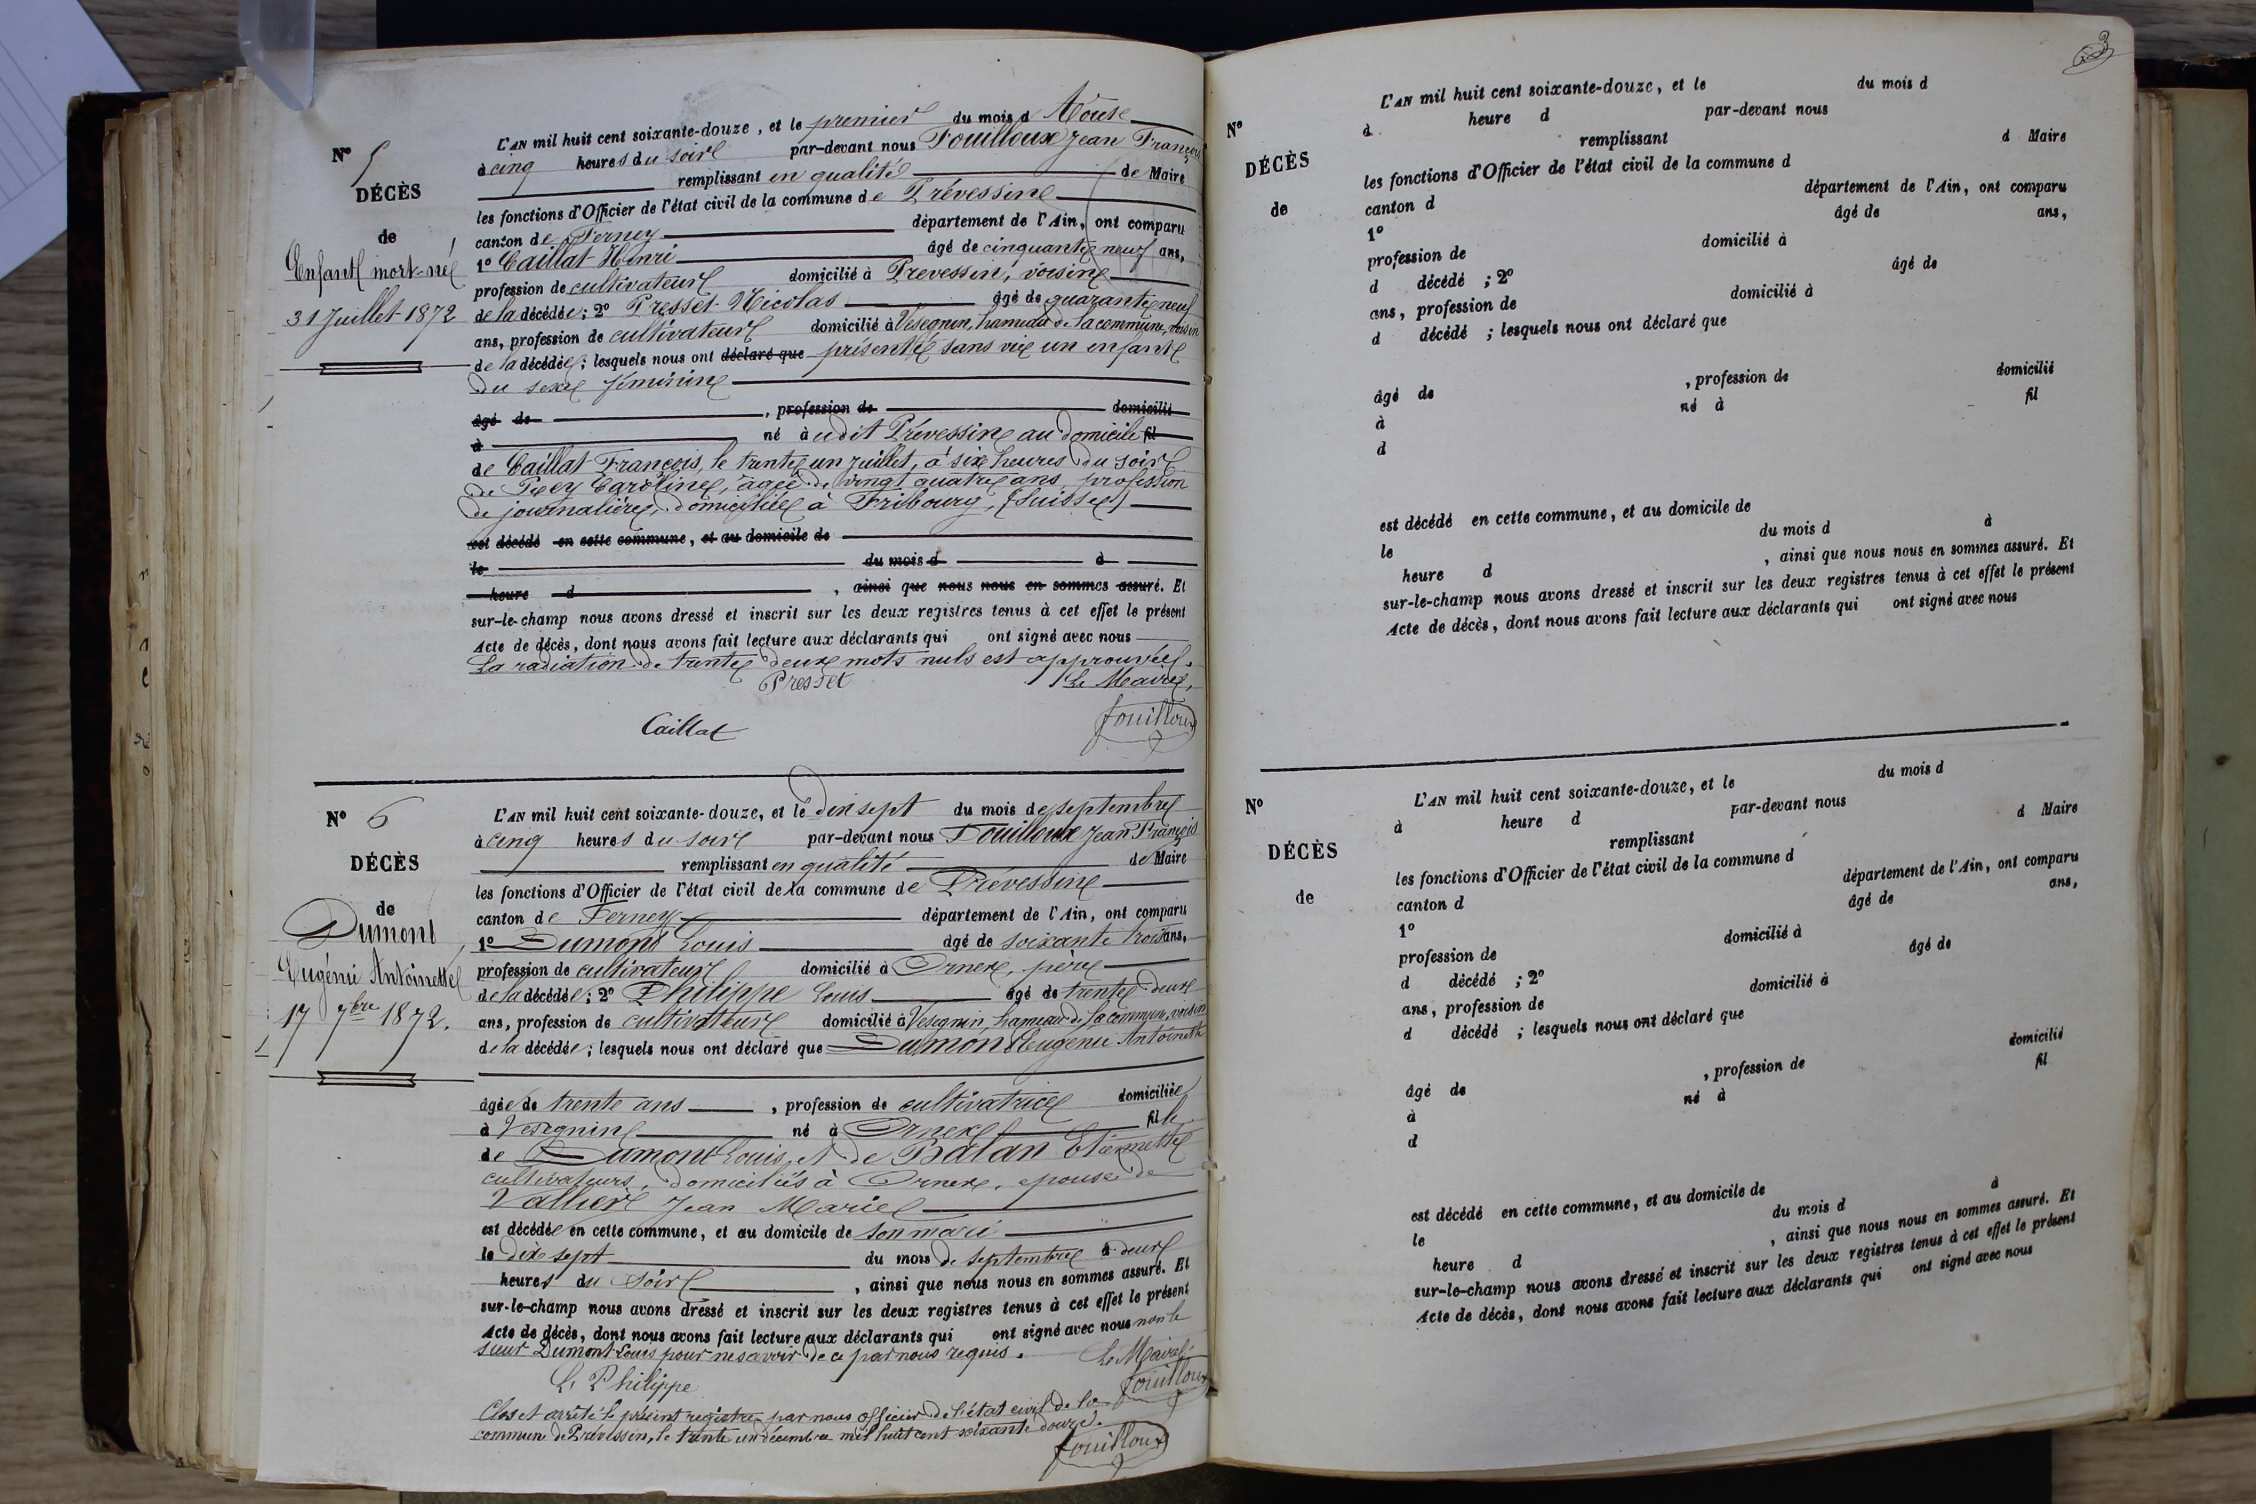 N° 5
DÉCÈS
de
Enfant mort-né
31 Juillet 1872
L'AN mil huit cent soixante-douze, et le premier du mois d'Aout
à cinq heures du soir par-devant nous Fouilloux Jean François
remplissant en qualité de Maire
les fonctions d'Officier de l'état civil de la commune de Prévessin
canton de Ferney département de l'Ain, ont comparu
1° Caillat Henri âgé de cinquante neuf ans,
profession de cultivateur domicilié à Prevessin, voisin
de la décédée; 2° Presset Nicolas âgé de quarante neuf
ans, profession de cultivateur domicilié à Vésegnin, hameau de la commune, voisin
de la décédée; lesquels nous ont déclaré que présenté sans vie un enfant
du sexe féminin
âgé de , profession de domicilié
à né à udit Prévessin au domicile fil
de Caillat François, le trente un juillet, à six heures du soir
de Caroline, âgée de vingt quatre ans, profession
de journalière, domiciliée à Fribourg, (Suisse)
est décédé en cette commune, et au domicile de
le du mois d à
heure d , ainsi que nous nous en sommes assuré. Et
sur-le-champ nous avons dressé et inscrit sur les deux registres tenus à cet effet le présent
Acte de décès, dont nous avons fait lecture aux déclarants qui ont signé avec nous
La radiation de trente deux mots nuls est approuvée.
Presset Le Maire,
Caillat Fouilloux
N° 6
DÉCÈS
de
Dumont
Eugénie Antoinette
17 7bre 1872.
L'AN mil huit cent soixante-douze, et le dix sept du mois de septembre
à cinq heures du soir par-devant nous Fouilloux Jean François
remplissant en qualité de Maire
les fonctions d'Officier de l'état civil de la commune de Prévessin
canton de Ferney département de l'Ain, ont comparu
1° Dumont Louis âgé de soixante trois ans,
profession de cultivateur domicilié à Ornex, père
de la décédée; 2° Philippe Louis âgé de trente deux
ans, profession de cultivateur domicilié à Vésegnin, hameau de la commune, voisin
de la décédée; lesquels nous ont déclaré que Dumont Eugénie Antoinette
âgée de trente ans , profession de cultivatrice domiciliée
à Vésegnin né à Ornex fille
de Dumont Louis, et de Balan Etiennette
cultivateurs, domiciliés à Ornex, epouse de
Vallier Jean Marie
est décédée en cette commune, et au domicile de son mari
le dix sept du mois de septembre à deux
heures du soir , ainsi que nous nous en sommes assuré. Et
sur-le-champ nous avons dressé et inscrit sur les deux registres tenus à cet effet le présent
Acte de décès, dont nous avons fait lecture aux déclarants qui ont signé avec nous non le
sieur Dumont Louis pour ne savoir de ce par nous requis. Le Maire
L. Philippe Fouilloux
Clos et arrêté le présent registre par nous officier de l'état civil de la
commune de Prévessin, le trente un décembre mil huit cent soixante douze.
Fouilloux
3
N°
DÉCÈS
de
L'AN mil huit cent soixante-douze, et le du mois d
à heure d par-devant nous
remplissant d Maire
les fonctions d'Officier de l'état civil de la commune d
canton d département de l'Ain, ont comparu
1° âgé de ans,
profession de domicilié à
d décédé ; 2° âgé de
ans, profession de domicilié à
d décédé ; lesquels nous ont déclaré que
âgé de , profession de domicilié
à né à fil
d
est décédé en cette commune, et au domicile de
le du mois d à
heure d , ainsi que nous nous en sommes assuré. Et
sur-le-champ nous avons dressé et inscrit sur les deux registres tenus à cet effet le présent
Acte de décès, dont nous avons fait lecture aux déclarants qui ont signé avec nous
N°
DÉCÈS
de
L'AN mil huit cent soixante-douze, et le du mois d
à heure d par-devant nous
remplissant d Maire
les fonctions d'Officier de l'état civil de la commune d
canton d département de l'Ain, ont comparu
1° âgé de ans,
profession de domicilié à
d décédé ; 2° âgé de
ans, profession de domicilié à
d décédé ; lesquels nous ont déclaré que
âgé de , profession de domicilié
à né à fil
d
est décédé en cette commune, et au domicile de
le du mois d à
heure d , ainsi que nous nous en sommes assuré. Et
sur-le-champ nous avons dressé et inscrit sur les deux registres tenus à cet effet le présent
Acte de décès, dont nous avons fait lecture aux déclarants qui ont signé avec nous